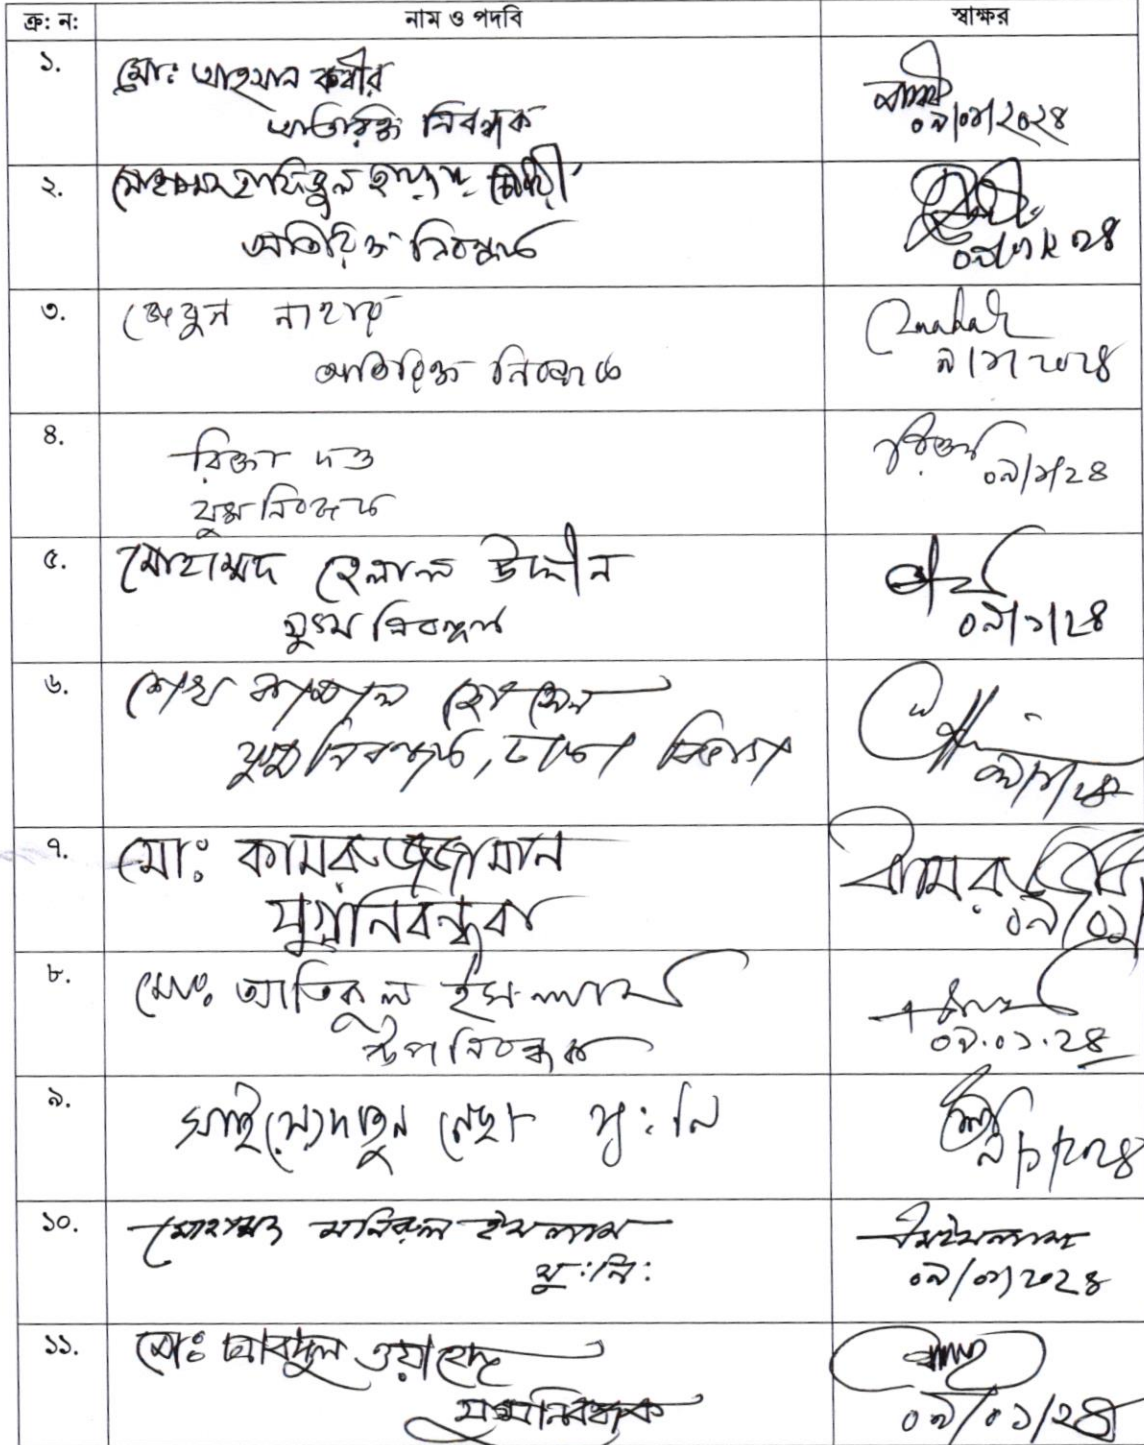 ক্র: ন: নাম ও পদবি স্বাক্ষর
১. মো: আহসান কবীর
অতিরিক্ত নিবন্ধক ০৯/০১/২০২৪
২.
অতিরিক্ত নিবন্ধক
৩. জেবুন নাহার
অতিরিক্ত নিবন্ধক ৯/১/২০২৪
৪. রিক্তা দত্ত রিক্তা ০৯/১/২৪
যুগ্ম নিবন্ধক
৫. মোহাম্মদ হেলাল উদ্দীন
যুগ্ম নিবন্ধক ০৯/১/২৪
৬. শেখ কামাল হোসেন
যুগ্মনিবন্ধক, ঢাকা বিভাগ ০৯/১/২৪
৭. মো: কামরুজ্জামান
যুগ্মনিবন্ধক ০৯/০১/
৮. মোঃ আতিকুল ইসলাম
উপনিবন্ধক ০৯.০১.২৪
৯. সাইয়্যেদাতুন নেছা যু: নি ৯/১/২০২৪
১০. মোহাম্মদ মনিরুল ইসলাম
যু:নি: ০৯/০১/২০২৪
১১. মো: আবদুল ওয়াহেদ
যুগ্মনিবন্ধক ০৯/০১/২৪